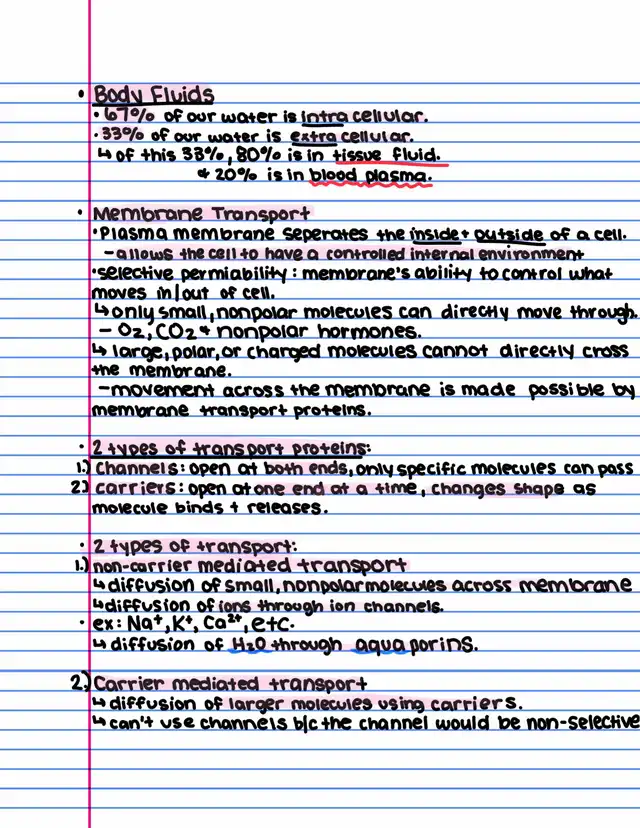 • Body Fluids
• 67% of our water is intracellular.
• 33% of our water is extracellular.
↳ of this 33%, 80% is in tissue fluid.
& 20% is in blood plasma.
• Membrane Transport
• Plasma membrane seperates the inside + outside of a cell.
- allows the cell to have a controlled internal environment
• selective permiability: membrane's ability to control what
moves in/out of cell.
↳ only small, nonpolar molecules can directly move through.
- O₂, CO₂ & nonpolar hormones.
↳ large, polar, or charged molecules cannot directly cross
the membrane.
- movement across the membrane is made possible by
membrane transport proteins.
• 2 types of transport proteins:
1.) Channels: open at both ends, only specific molecules can pass
2.) Carriers: open at one end at a time, changes shape as
molecule binds + releases.
• 2 types of transport:
1.) non-carrier mediated transport
↳ diffusion of small, nonpolar molecules across membrane
↳ diffusion of ions through ion channels.
• ex: Na⁺, K⁺, Ca²⁺, etc.
↳ diffusion of H₂O through aquaporins.
2.) Carrier mediated transport
↳ diffusion of larger molecules using carriers.
↳ can't use channels b/c the channel would be non-selective